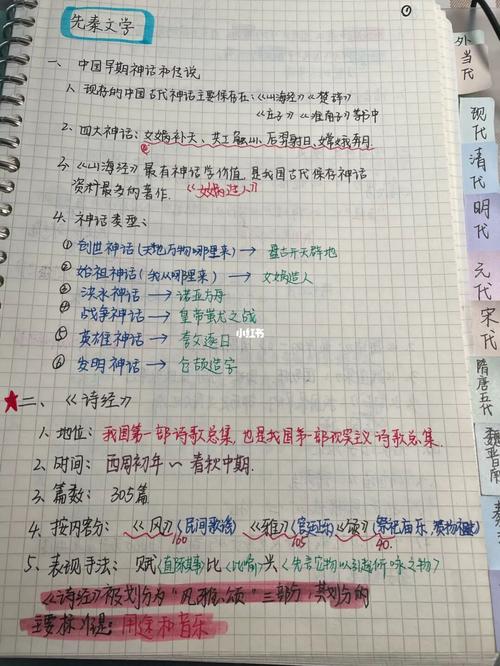 ①
先秦文学
一、中国早期神话和传说
1. 现存的中国古代神话主要保存在:《山海经》《楚辞》
《庄子》《淮南子》等书中
2. 四大神话:女娲补天、共工触山、后羿射日、嫦娥奔月.
3. 《山海经》最有神话学价值,是我国古代保存神话
资料最多的著作. 《女娲造人》
4. 神话类型:
① 创世神话(天地万物哪里来) → 盘古开天辟地
② 始祖神话(我从哪里来) → 女娲造人
③ 洪水神话 → 诺亚方舟
④ 战争神话 → 皇帝蚩尤之战
⑤ 英雄神话 → 夸父逐日
⑥ 发明神话 → 仓颉造字
小红书
二、《诗经》
1. 地位:我国第一部诗歌总集,也是我国第一部现实主义诗歌总集.
2. 时间:西周初年~春秋中期.
3. 篇数:305篇
4. 按内容分:《风》(民间歌谣)《雅》(宫廷乐)《颂》(祭祀庙乐,
160 105 40.
5. 表现手法:赋(直陈其事)比(比喻)兴(先言它物以引起所咏之物)
《诗经》被划分为“风雅颂”三部分,其划分的
主要标准是:用途和音乐
外
当
代
现
代
清
代
明
代
元
代
宋
代
隋
唐
五
代
魏
晋
南